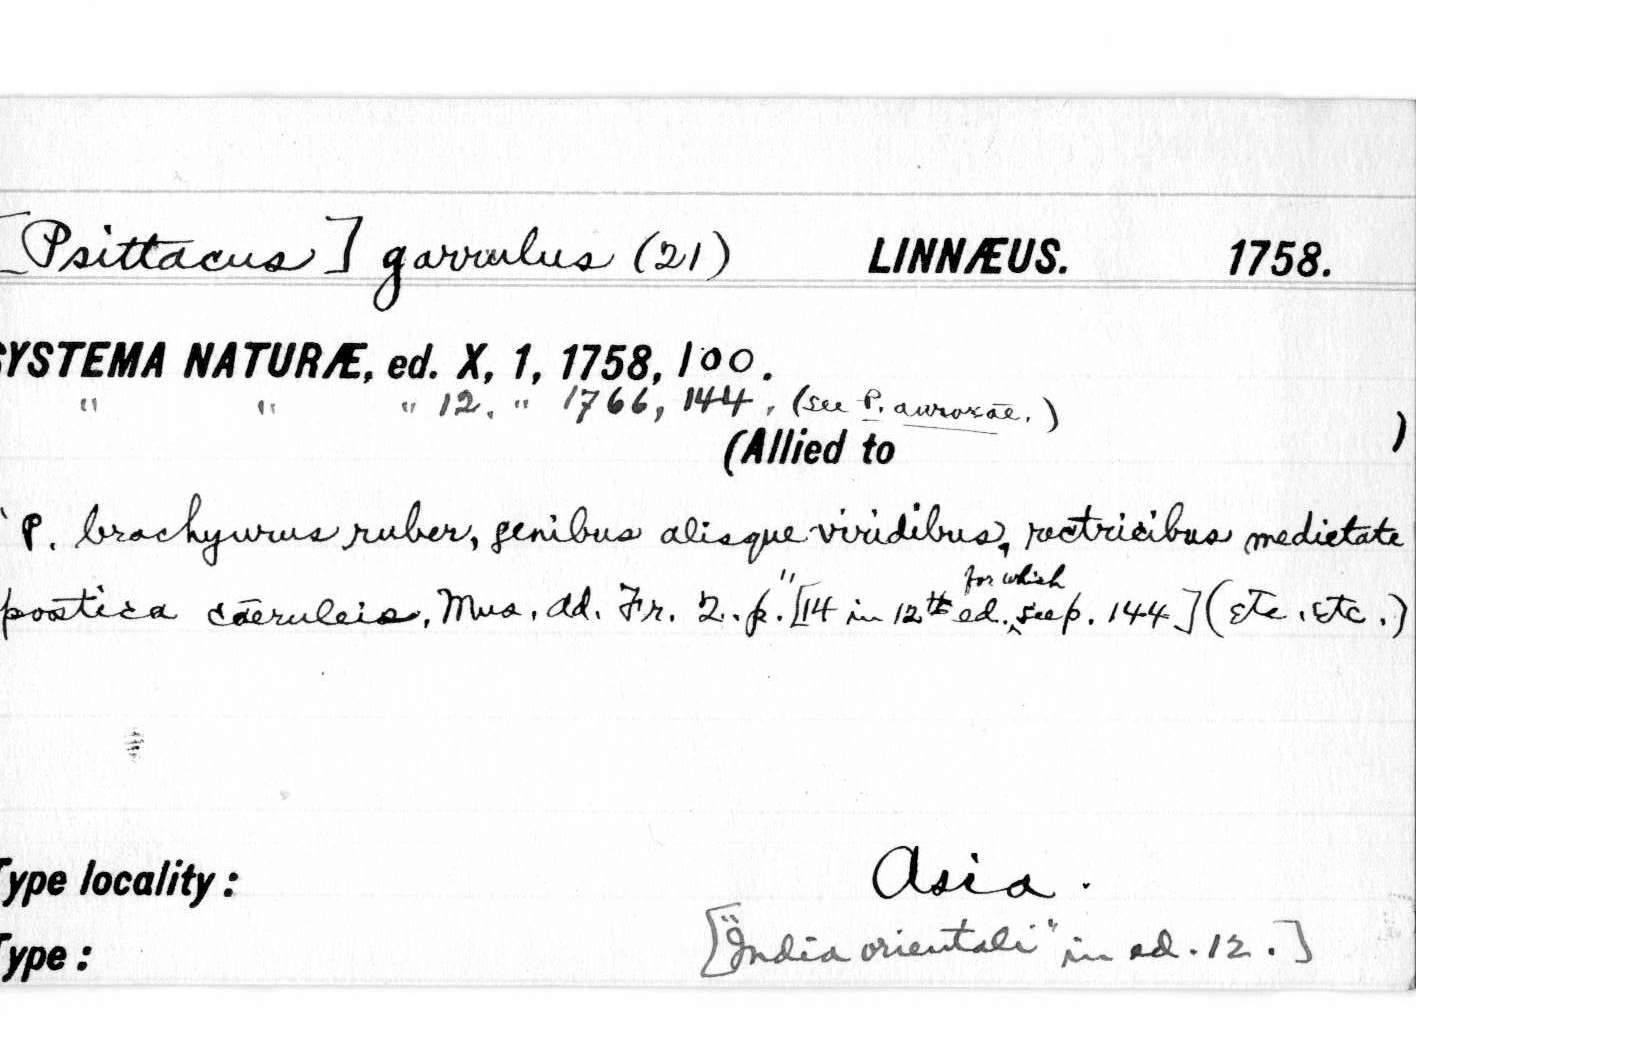 [Psittacus] garrulus (21) LINNÆUS. 1758.
SYSTEMA NATURÆ, ed. X, 1, 1758, 100.
" " " 12. " 1766, 144, (see P. aurorae.)
(Allied to )
" P. brachyurus ruber, genibus alisque viridibus, rectricibus medietate
for which
postica caeruleis. Mus. ad. Fr. 2. p." [14 in 12th ed., see p. 144] (etc. etc.)
Type locality: Asia.
["India orientali" in ed. 12.]
Type: